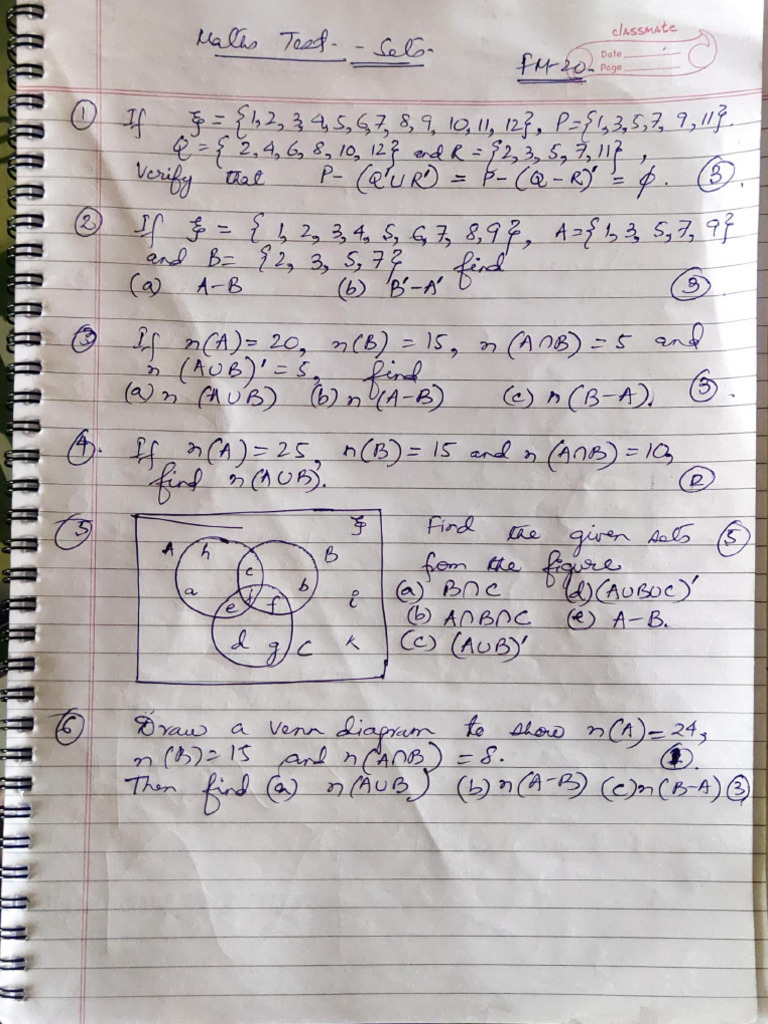 classmate
Date
Page
Maths Test - Sets.
FM-20.
① If ξ = {1,2,3,4,5,6,7,8,9,10,11,12}, P={1,3,5,7,9,11}.
Q = {2,4,6,8,10,12} and R = {2,3,5,7,11},
Verify that P-(Q'∪R') = P-(Q-R)' = ϕ. ③.
② If ξ = {1,2,3,4,5,6,7,8,9}, A={1,3,5,7,9}
and B= {2,3,5,7} find
(a) A-B (b) B'-A' ③
③ If n(A)=20, n(B)=15, n(A∩B)=5 and
n(A∪B)'=5, find
(a) n(A∪B) (b) n(A-B) (c) n(B-A). ③.
④. If n(A)=25, n(B)=15 and n(A∩B)=10,
find n(A∪B). ②
⑤ ξ Find the given sets ⑤
A h B from the figure
c (a) B∩C (d) (A∪B∪C)'
a b i (b) A∩B∩C (e) A-B.
e j f
d g C k (c) (A∪B)'
⑥ Draw a venn diagram to show n(A)=24,
n(B)=15 and n(A∩B)=8. ①.
Then find (a) n(A∪B) (b) n(A-B) (c) n(B-A) ③